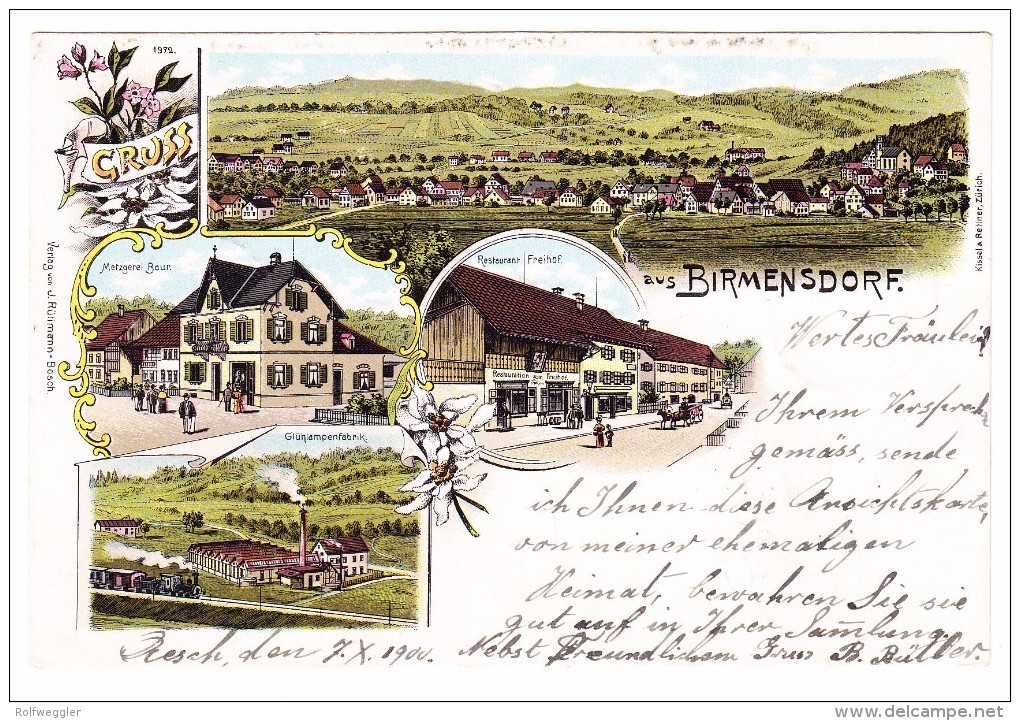 1972.
GRUSS
aus BIRMENSDORF.
Kissel & Rellner, Zürich.
Verlag von J. Rüttimann-Bösch.
Metzgerei Baur.
Restaurant Freihof.
Restauration zum Freihof.
Glühlampenfabrik.
Wertes Fräulein
Ihrem Versprech
gemäss, sende
ich Ihnen diese Ansichtskarte,
von meiner ehemaligen
Heimat, bewahren Sie sie
gut auf in Ihrer Sam̅lung.
Nebst Freundlichem Gruss B. Büller.
den 7.X.1900.
Rolfweggler
www.delcampe.net